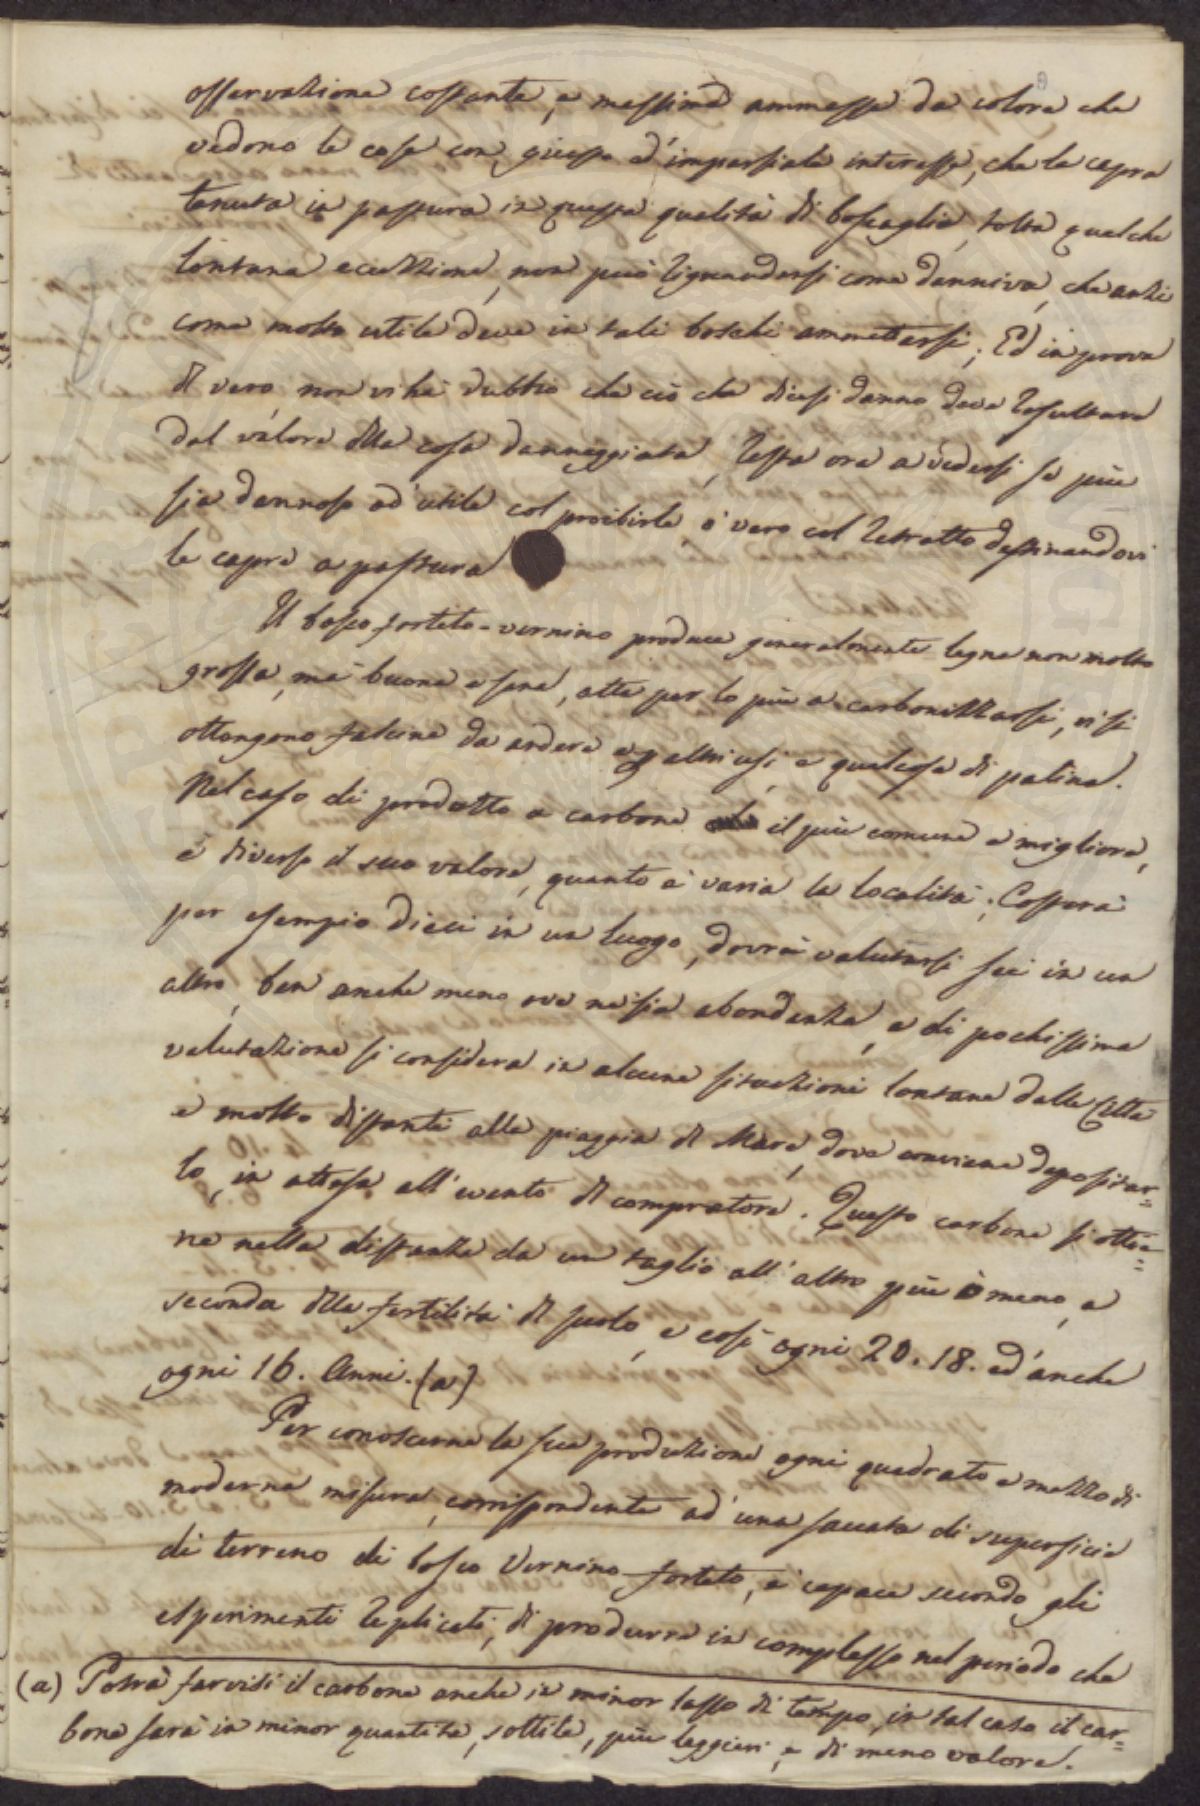 osservazione costante, e massima ammessa da coloro che
vedono le cose con giusto ed'imparziale interesse, che la capra
tenuta in pastura in questa qualità di boscaglie, tolta qualche
lontana eccezzione, non può riguardarsi come danniva, che anzi
come molto utile deve in tali boschi ammettersi; Ed in prova
di vero, non vi hà dubbio che ciò che dicesi danno deve resultare
dal valore della cosa danneggiata, resta ora a vedersi se più
sia dannoso ed'utile col proibirle, o' vero col retratto destinandovi
le capre a pastura
Il bosco fortito-vernino produce generalmente legna non molto
grossa, mà buona e sana, atta per lo più a carbonizzarsi, vi si
ottengono fascine da ardere e p altri usi, e qualcosa di palina.
Nel caso di prodotto a carbone il più comune e migliore,
é diverso il suo valore, quanto é varia la località; Costerà
per esempio dieci in un luogo, dovrà valutarsi sei in un
altro, ben anche meno ove ne sia abondanza, e di pochissima
valutazione si considera in alcune situazioni lontane dalle Città
e molto distanti alla piaggia di Mare, dove conviene depositar=
lo, in attesa all'evento di compratore. Questo carbone si ottie=
ne nella distanza da un taglio all'altro più ò meno, a
seconda della fertilità di suolo, e così ogni 20. 18. ed'anche
ogni 16. Anni. (a)
Per conoscerne la sua produzione ogni quadrato e mezzo di
moderna misura, corrispondente ad'una saccata di superficie
di terreno di bosco Vernino-fortito, é capace secondo gli
esperimenti replicati, di produrre in complesso nel periodo che
(a) Potrà farvisi il carbone anche in minor lasso di tempo, in tal caso il car=
bone sarà in minor quantità, sottile, più leggieri, e di meno valore.